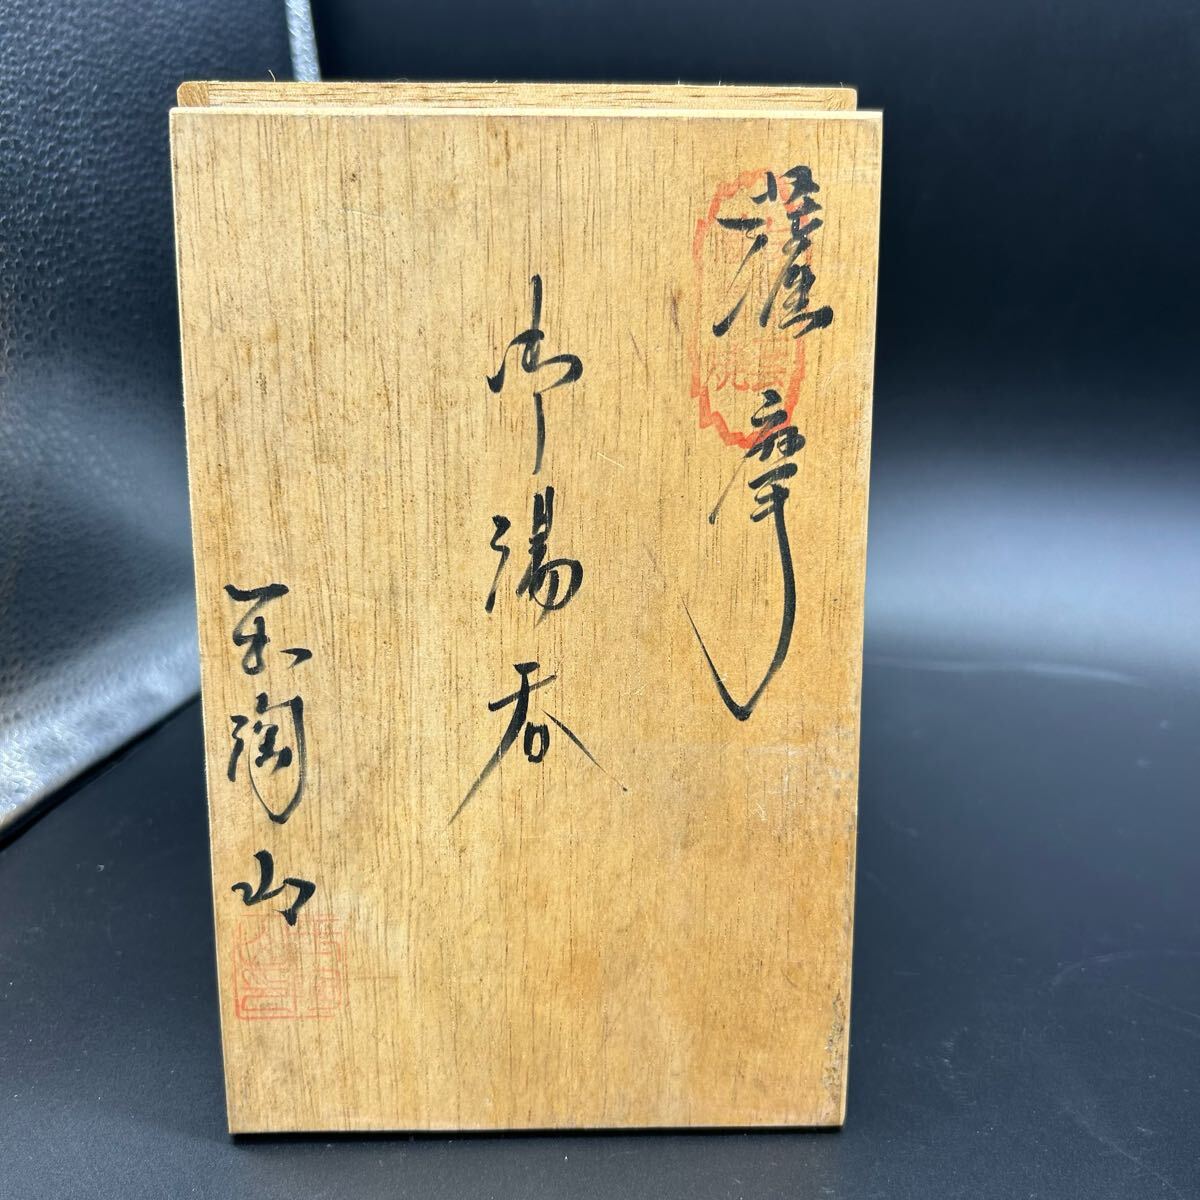 薩摩
御湯呑
陶山